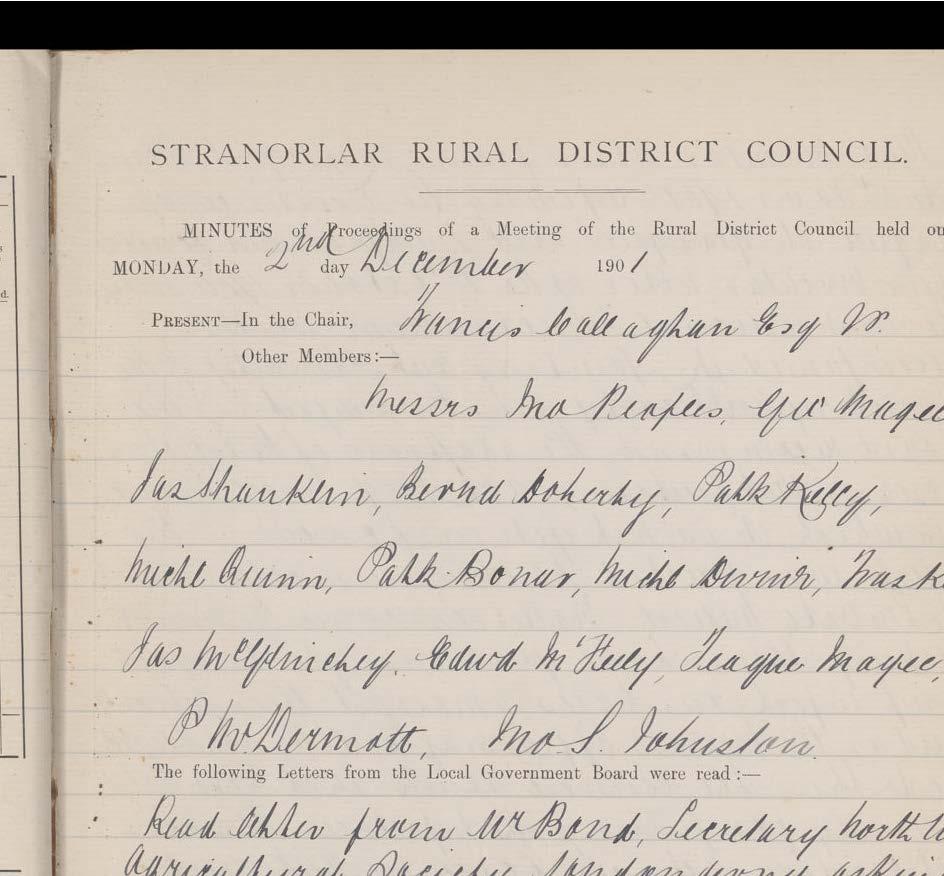 STRANORLAR RURAL DISTRICT COUNCIL.
MINUTES of Proceedings of a Meeting of the Rural District Council held on
MONDAY, the 2nd day December 1901
PRESENT—In the Chair, Francis Callaghan Esq
Other Members:—
Messrs Jno Peoples, Magee
Jas Shanklin, Bernd Doherty, Patk Kelly,
Michl Quinn, Patk Bonar, Michl Devine, Fras K
Jas McGlinchey. Edwd McFeely, Teague Magee,
P McDermott, Jno S. Johnston.
The following Letters from the Local Government Board were read:—
Read letter from Mr Bond, Secretary North W
Agricultural Society Londonderry askin
d.